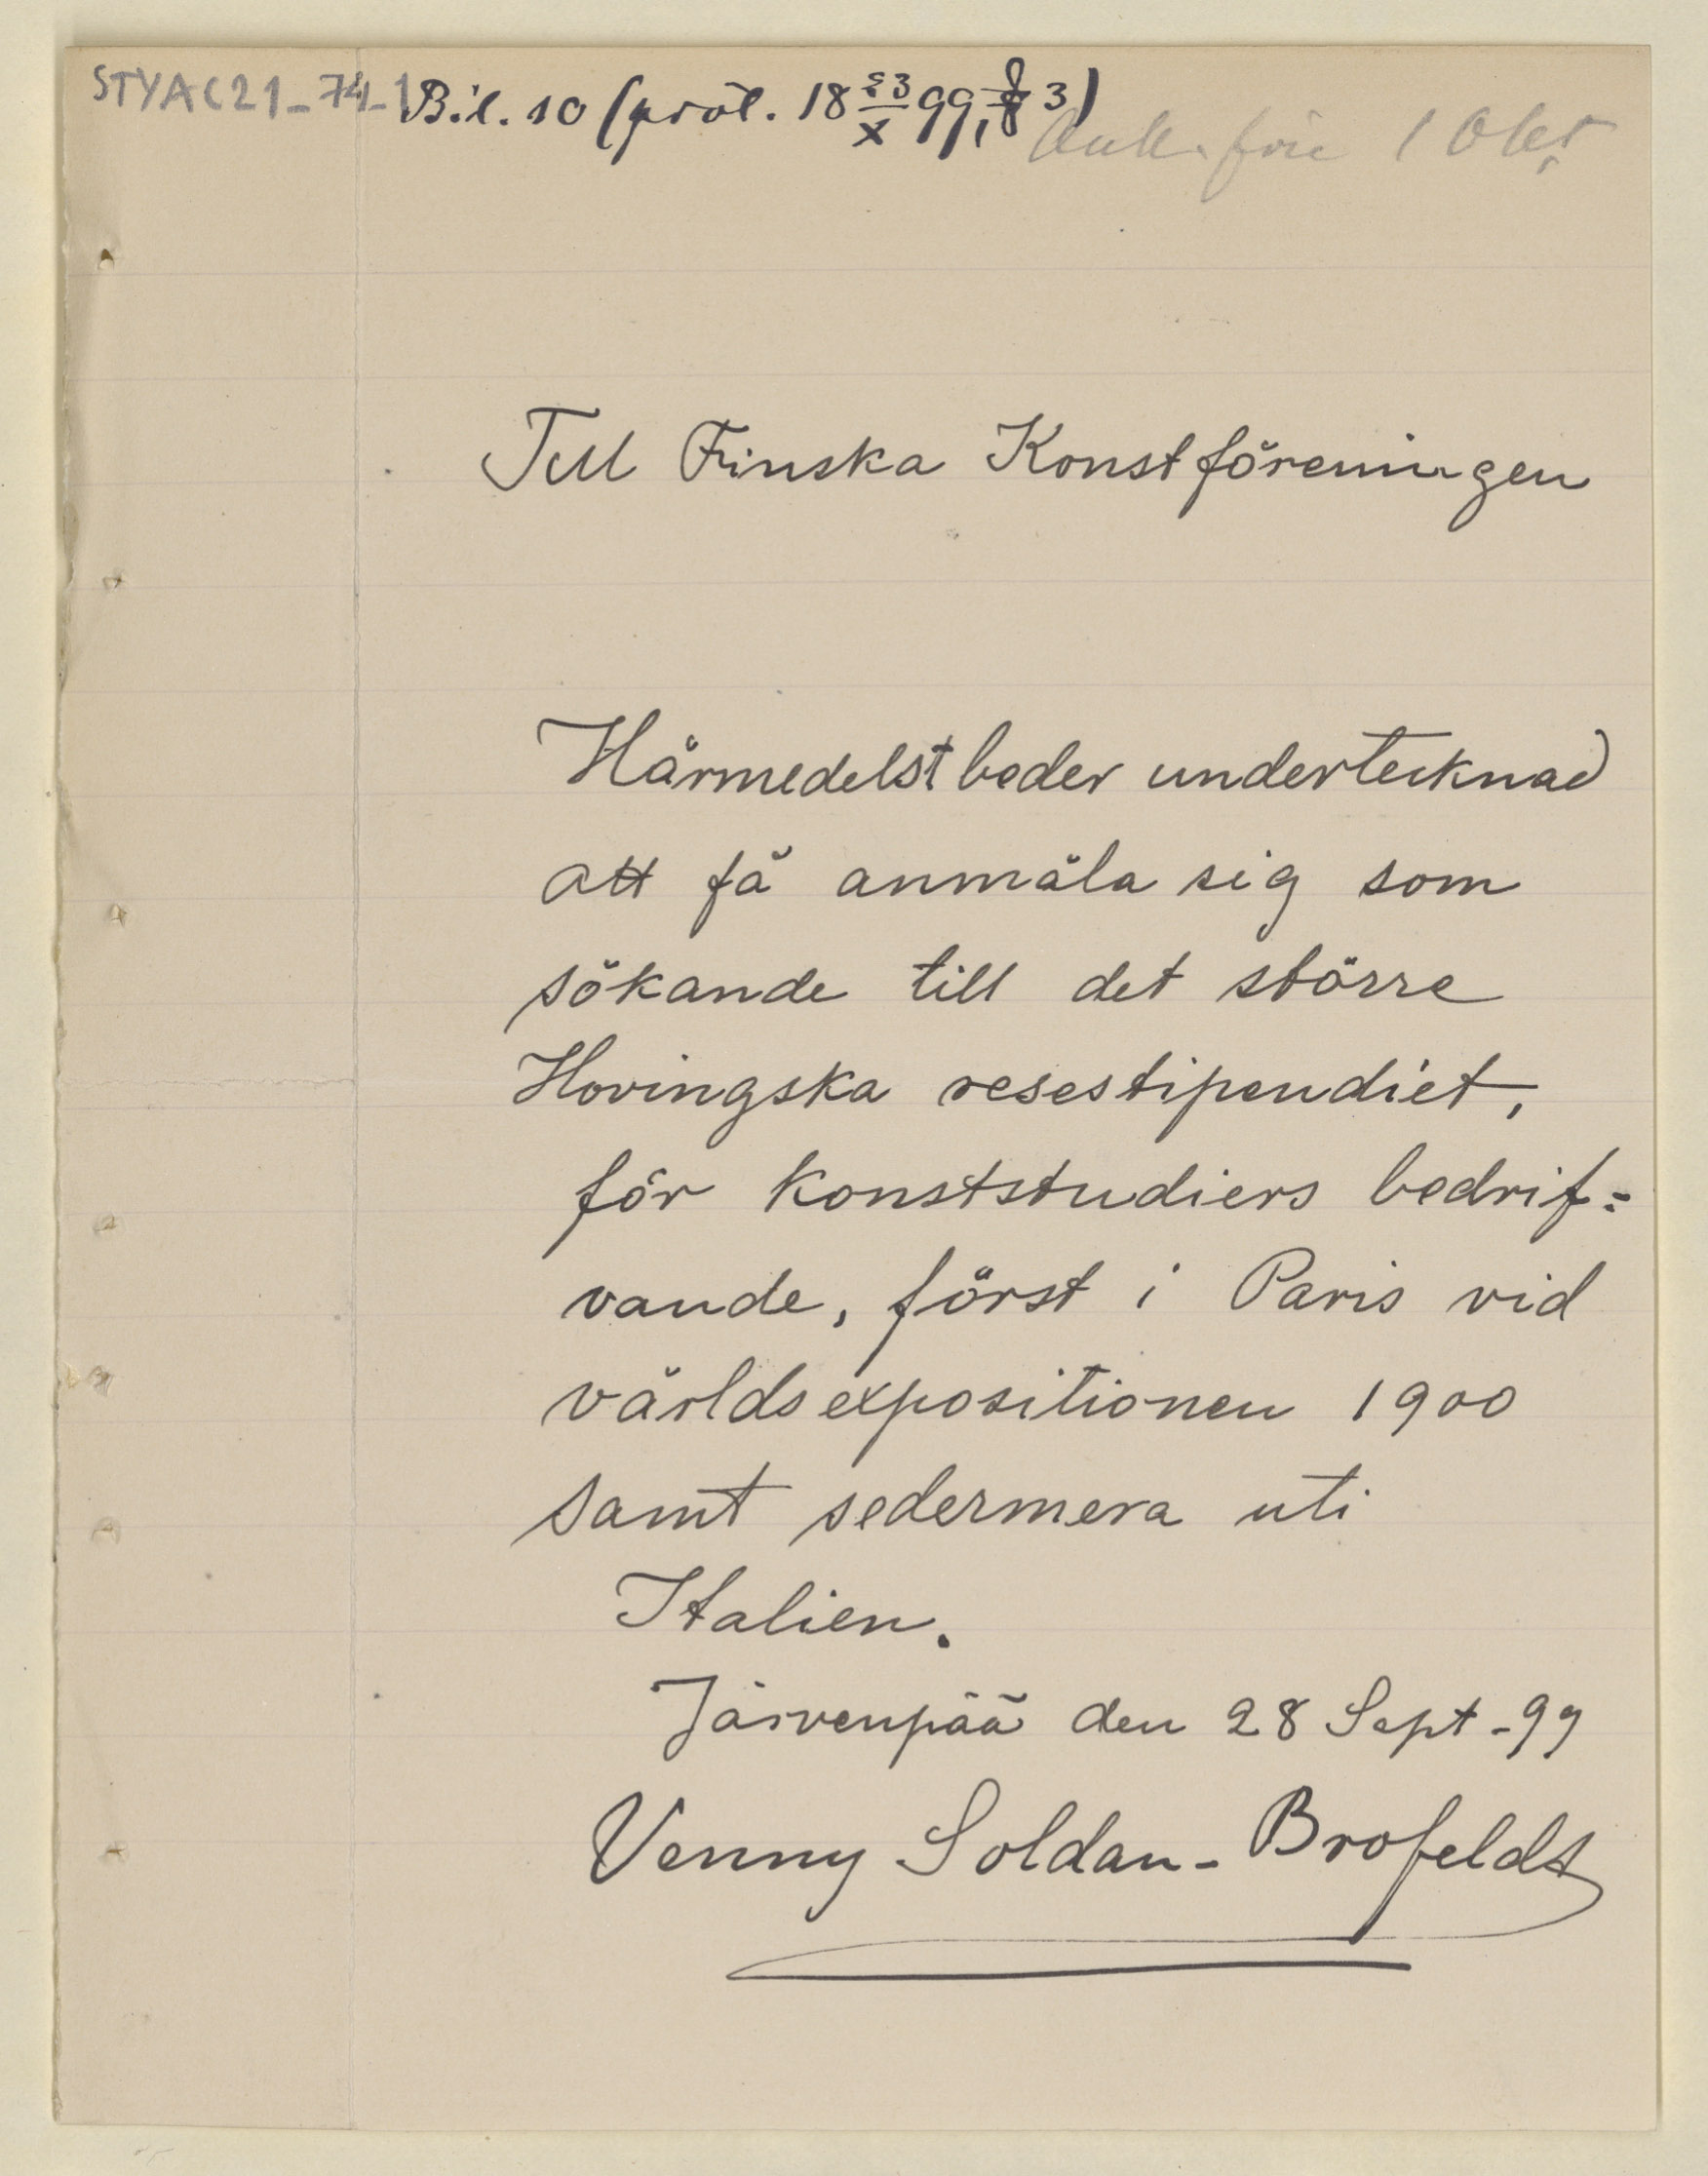 STYA C21_74_1 Bil. 10 (prot. 18 23/X 99, § 3)
före 1 Okt
Till Finska Konstföreningen
Härmedelst beder undertecknad
att få anmäla sig som
sökande till det större
Hovingska resestipendiet,
för konststudiers bedrif-
vande, först i Paris vid
världsexpositionen 1900
samt sedermera uti
Italien.
Järvenpää den 28 Sept -99
Venny Soldan-Brofeldt